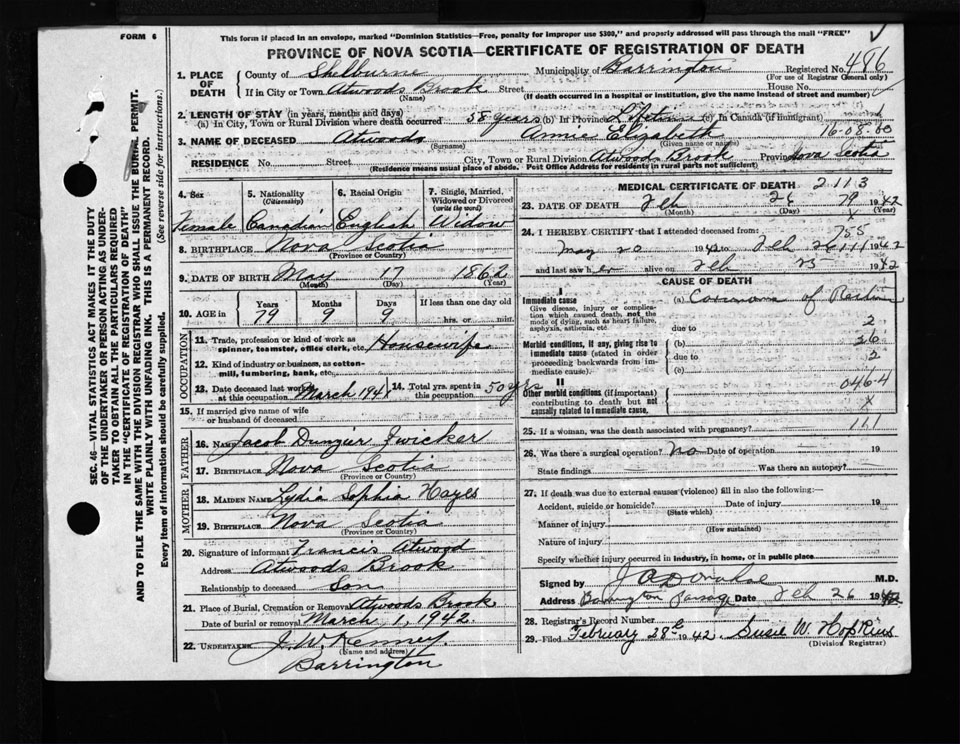 FORM 6
This form if placed in an envelope, marked "Dominion Statistics—Free, penalty for improper use $300," and properly addressed will pass through the mail "FREE"
PROVINCE OF NOVA SCOTIA—CERTIFICATE OF REGISTRATION OF DEATH
1. PLACE OF DEATH
County of Shelburne Municipality of Barrington Registered No. 486
(For use of Registrar General only)
If in City or Town Atwoods Brook Street House No.
(Name) (If death occurred in a hospital or institution, give the name instead of street and number)
2. LENGTH OF STAY (in years, months and days)
(a) In City, Town or Rural Division where death occurred 58 years (b) In Province Lifetime (c) In Canada (if immigrant)
3. NAME OF DECEASED Atwood Annie Elizabeth 16-08-60
(Surname) (Given name or names)
RESIDENCE No. Street City, Town or Rural Division Atwoods Brook Province Nova Scotia
(Residence means usual place of abode. Post Office Address for residents in rural parts not sufficient)
4. Sex
Female
5. Nationality
(Citizenship)
Canadian
6. Racial Origin
English
7. Single, Married, Widowed or Divorced
(write the word)
Widow
8. BIRTHPLACE Nova Scotia
(Province or Country)
9. DATE OF BIRTH May 17 1862
(Month) (Day) (Year)
10. AGE in
Years Months Days If less than one day old
79 9 9 hrs. or min.
OCCUPATION
11. Trade, profession or kind of work as spinner, teamster, office clerk, etc. Housewife
12. Kind of industry or business, as cotton-mill, lumbering, bank, etc.
13. Date deceased last worked at this occupation March 194
14. Total yrs. spent in this occupation 50 yrs
15. If married give name of wife or husband of deceased
FATHER
16. NAME Jacob Zwicker
17. BIRTHPLACE Nova Scotia
MOTHER
18. MAIDEN NAME Lydia Sophia Hayes
19. BIRTHPLACE Nova Scotia
(Province or Country)
20. Signature of informant Francis Atwood
Address Atwoods Brook
Relationship to deceased Son
21. Place of Burial, Cremation or Removal Atwoods Brook
Date of burial or removal March 1, 1942.
22. UNDERTAKER J. W. Kenney
(Name and address)
Barrington
MEDICAL CERTIFICATE OF DEATH 2113
23. DATE OF DEATH Feb 26 1942
(Month) (Day) (Year)
24. I HEREBY CERTIFY that I attended deceased from:
May 20 194 to Feb 26 1942
and last saw her alive on Feb 25 1942
CAUSE OF DEATH
I
Immediate cause
Give disease, injury or complication which caused death, not the mode of dying, such as heart failure, asphyxia, asthenia, etc.
(a) Carcinoma of Rectum
due to 2
Morbid conditions, if any, giving rise to immediate cause (stated in order proceeding backwards from immediate cause).
(b) 26
due to 2
(c)
II
Other morbid conditions (if important) contributing to death but not causally related to immediate cause.
046-4
X
25. If a woman, was the death associated with pregnancy? 111
26. Was there a surgical operation? no Date of operation 19
State findings Was there an autopsy?
27. If death was due to external causes (violence) fill in also the following:—
Accident, suicide or homicide? Date of injury 19
(State which)
Manner of injury
(How sustained)
Nature of injury
Specify whether injury occurred in industry, in home, or in public place
Signed by J A Donahoe M.D.
Address Barrington Passage Date Feb 26 1942
28. Registrar's Record Number
29. Filed February 28 1942. Susie W. Hopkins
(Division Registrar)
SEC. 46—VITAL STATISTICS ACT MAKES IT THE DUTY
OF THE UNDERTAKER OR PERSON ACTING AS UNDER-
TAKER TO OBTAIN ALL THE PARTICULARS REQUIRED
IN THE "CERTIFICATE OF REGISTRATION OF DEATH"
AND TO FILE THE SAME WITH THE DIVISION REGISTRAR WHO SHALL ISSUE THE BURIAL PERMIT.
WRITE PLAINLY WITH UNFADING INK. THIS IS A PERMANENT RECORD.
Every item of information should be carefully supplied. (See reverse side for instructions.)